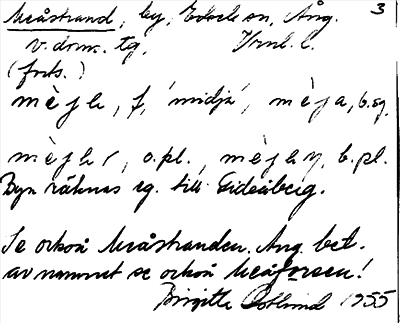 Meåstrand, by, Edsele sn, Ång. 3
v. domk. tg, Vrnl. l.
(forts.)
mèjɦ, f, 'midja', mèja, b.sg,
mèjɦr, o.pl., mèjɦṇ, b.pl.
Byn räknas eg. till Eideåberg.
Se också Meåstranden. Ang. bet.
av namnet se också Meåforsen!
Birgitta 1955